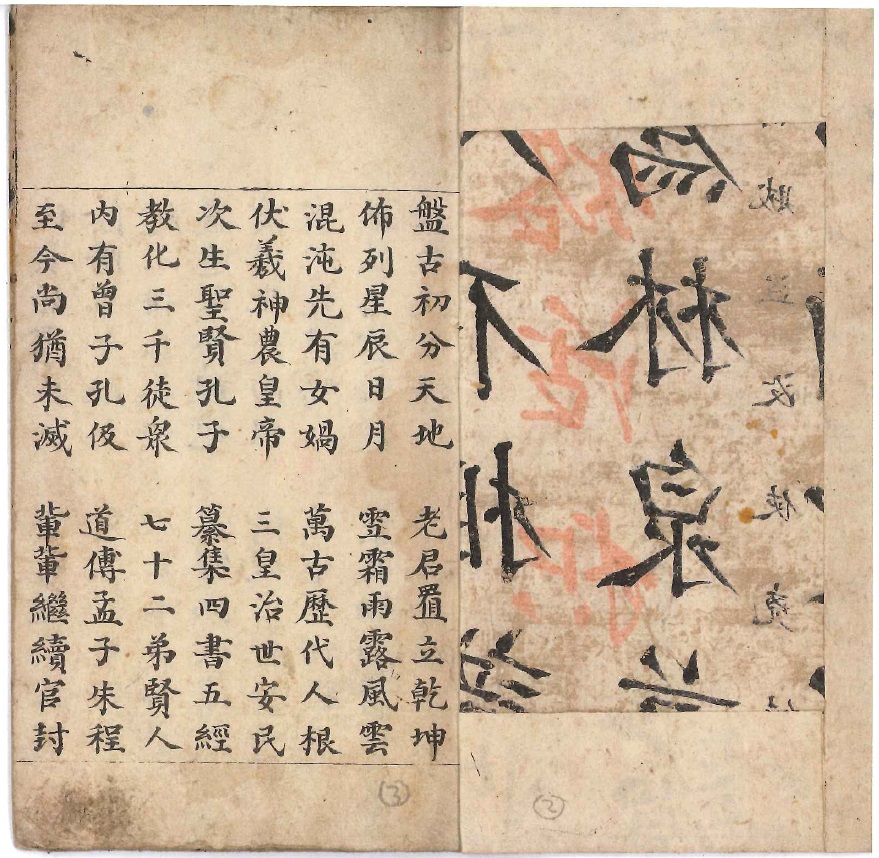 林泉
不
盤古初分天地 老君置立乾坤
佈列星辰日月 雪霜雨露風雲
混沌先有女媧 萬古歷代人根
伏羲神農皇帝 三皇治世安民
次生聖賢孔子 纂集四書五經
教化三千徒眾 七十二弟賢人
內有曾子孔伋 道傳孟子朱程
至今尚猶未滅 輩輩繼續官封
2
3